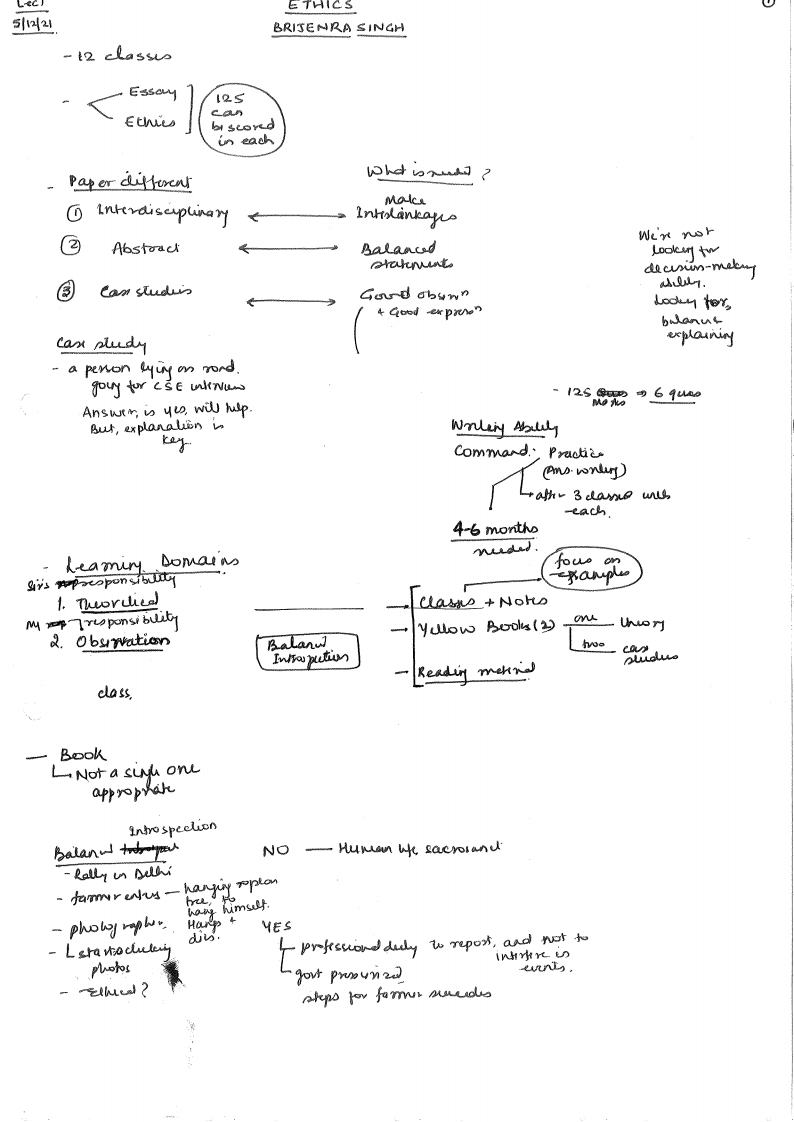 Lec 1
5/12/21
ETHICS
BRIJENRA SINGH
1
- 12 classes
- Essay
Ethics
125
can
be scored
in each
- Paper different
What is need?
① Interdisciplinary
Make
Interlinkages
② Abstract
Balanced
statements
③ Case studies
Good obsvn
+ Good expresn
We're not
looking for
decision-making
ability.
Looking for,
balance
explaining
Case study
- a person lying on road.
going for CSE interview
Answer, is yes, will help.
But, explanation is
key.
- 125 Marks ⇒ 6 ques
Writing Ability
Command: Practice
(Ans. writing)
after 3 classes
each.
4-6 months
needed.
- Learning Domains
Sir's responsibility
1. Theoretical
My responsibility
2. Observation
Balanced
Introspection
focus on
examples
- Classes + Notes
- Yellow Books (2) one theory
two case
studies
- Reading material
class,
- Book
Not a single one
appropriate
Introspection
Balanced
- Rally in Delhi
- farmer enters - hanging rope on
tree, to
hang himself.
Hangs +
dies.
- photographer
- starts clicking
photos
- Ethical?
NO - Human life sacrosanct
YES
professional duty to report, and not to
interfere in
events.
govt pressurized
steps for farmer suicides